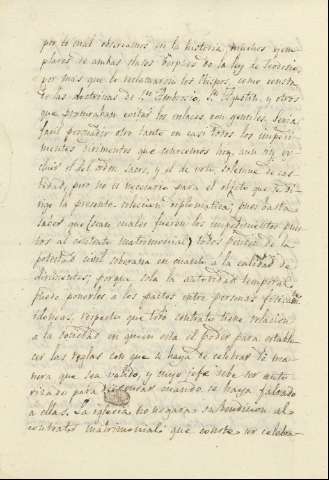 por lo cual observamos en la historia muchos exem-
plares de ambas clases despues de la ley de Teodosio,
por mas que lo reclamaron los Obispos, como consta
de las doctrinas de Sn. Ambrosio, Sn. Agustin, y otros
que procuraban evitar los enlaces con gentiles. Seria
facil persuadir otro tanto en casi todos los impedi-
mentos dirimentes que conocemos hoy, aun sin ex-
cluir el del orden sacro, y el de voto solemne de cas-
tidad, pero no es necesario para el objeto que se di-
rige la presente colección diplomatica, pues basta
saber que (sean cuales fueren los impedimentos pues-
tos al contrato matrimonial) todos penden de la
potestad civil soberana en cuanto a la calidad de
dirimentes; porque sola la autoridad temporal
puede ponerlos a los pactos entre personas fisicamte
idoneas, respecto que todo contrato tiene relacion
a la sociedad en quien esta el poder para estable-
cer las reglas con que se haya de celebrar de ma-
nera que sea valido, y cuyo jefe debe ser auto-
rizado para dispensar cuando se haya faltado
a ellas. La iglesia no negara su bendicion al
contrato matrimonial que conste ser celebra-